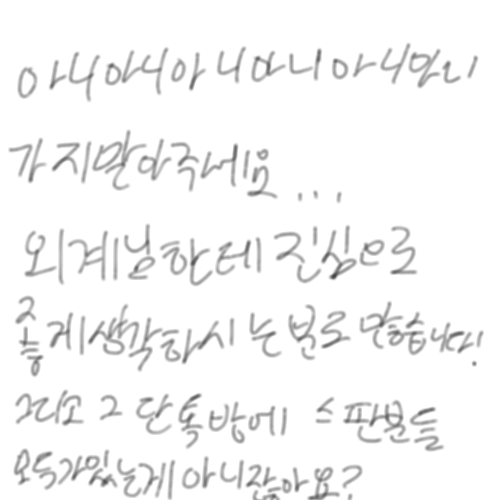 아니아니아니아니아니만니
가지말아주세요...
외계님한테 진심으로
좋게생각하시는분로 많습니다!
그리고 그 단톡방에 스판분들
모두가있는게아니잖아요?